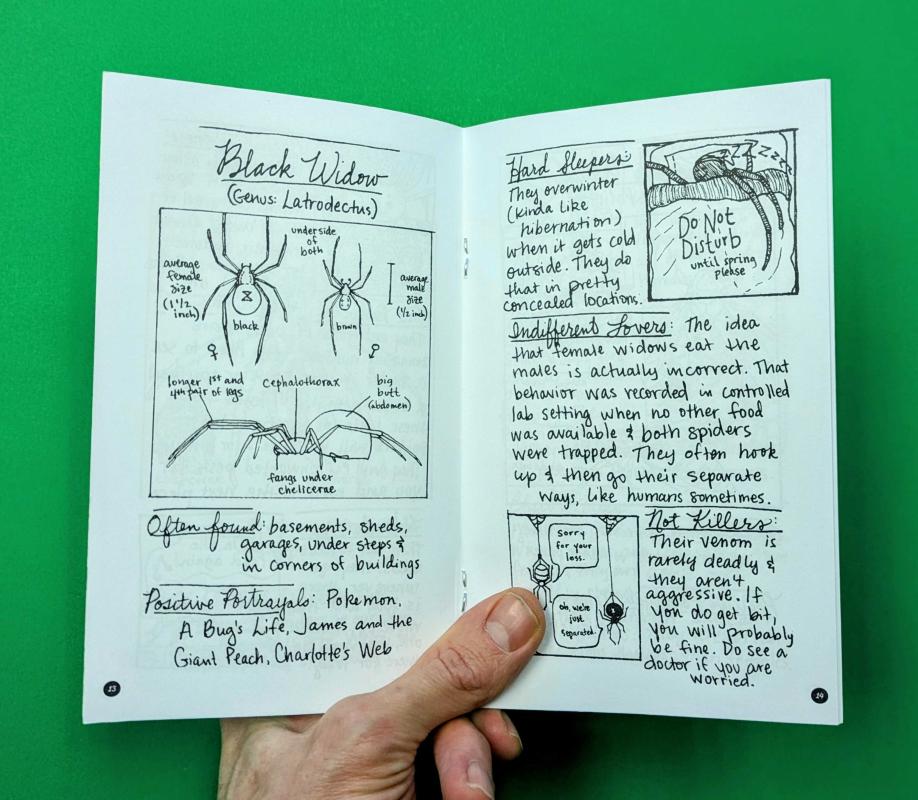 Black Widow
(Genus: Latrodectus)
average
female
size
(1 1/2
inch)
underside
of
both
average
male
size
(1/2 inch)
black
brown
♀
♂
longer 1st and
4th pair of legs
Cephalothorax
big
butt
(abdomen)
fangs under
chelicerae
Often found: basements, sheds,
garages, under steps &
in corners of buildings
Positive Portrayals: Pokemon,
A Bug's Life, James and the
Giant Peach, Charlotte's Web
13
Hard Sleepers:
They overwinter
(kinda like
hibernation)
when it gets cold
outside. They do
that in pretty
concealed locations.
ZZZZzzz
Do Not
Disturb
until spring
please
Indifferent Lovers: The idea
that female widows eat the
males is actually incorrect. That
behavior was recorded in controlled
lab setting when no other food
was available & both spiders
were trapped. They often hook
up & then go their separate
ways, like humans sometimes.
Sorry
for your
loss.
oh, we're
just
separated.
Not Killers:
Their venom is
rarely deadly &
they aren't
aggressive. If
you do get bit,
you will probably
be fine. Do see a
doctor if you are
worried.
14